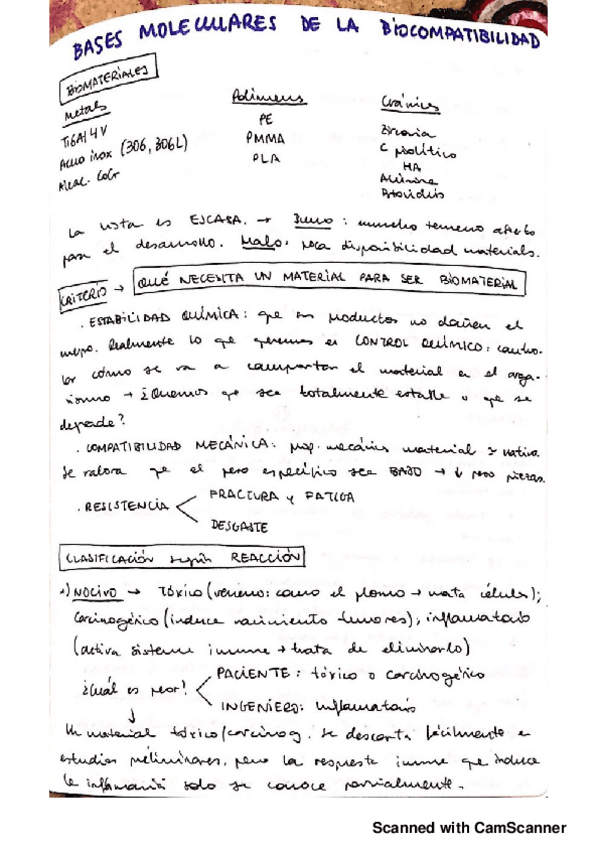 BASES MOLECULARES DE LA BIOCOMPATIBILIDAD
BIOMATERIALES
Metales
Ti6Al4V
Acero inox (306, 306L)
Aleac. CoCr
Polímeros
PE
PMMA
PLA
Cerámicos
Zirconia
C pirolítico
HA
Alúmina
Biovidrios
La lista es ESCASA. → Bueno: mucho terreno abierto
para el desarrollo. Malo: poca disponibilidad materiales.
CRITERIO → QUÉ NECESITA UN MATERIAL PARA SER BIOMATERIAL
. ESTABILIDAD QUÍMICA: que sus productos no dañen el
cuerpo. Realmente lo que queremos es CONTROL QUÍMICO: contro-
lar cómo se va a comportar el material en el orga-
nismo → ¿Queremos que sea totalmente estable o que se
degrade?
. COMPATIBILIDAD MECÁNICA: prop. mecánicas material ≃ nativa.
Se valora que el peso específico sea BAJO → ↓ peso piezas.
. RESISTENCIA
FRACTURA y FATIGA
DESGASTE
CLASIFICACIÓN según REACCIÓN
1) NOCIVO → Tóxico (veneno: como el plomo → mata células);
Carcinogénico (induce nacimiento tumores); inflamatorio
(activa sistema inmune → trata de eliminarlo)
¿Cuál es peor?
PACIENTE: tóxico o carcinogénico
INGENIERO: inflamatorio
↓
Un material tóxico/carcinog. se descarta fácilmente en
estudios preliminares, pero la respuesta inmune que induce
la inflamación solo se conoce parcialmente.
Scanned with CamScanner